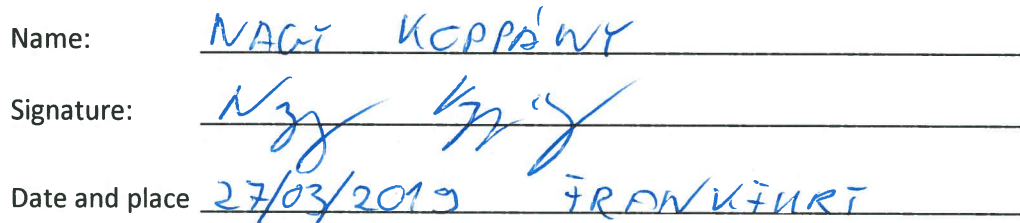 Name: NAGY KOPPÁNY
Signature: Nagy Koppány
Date and place 27/03/2019 FRANKFURT